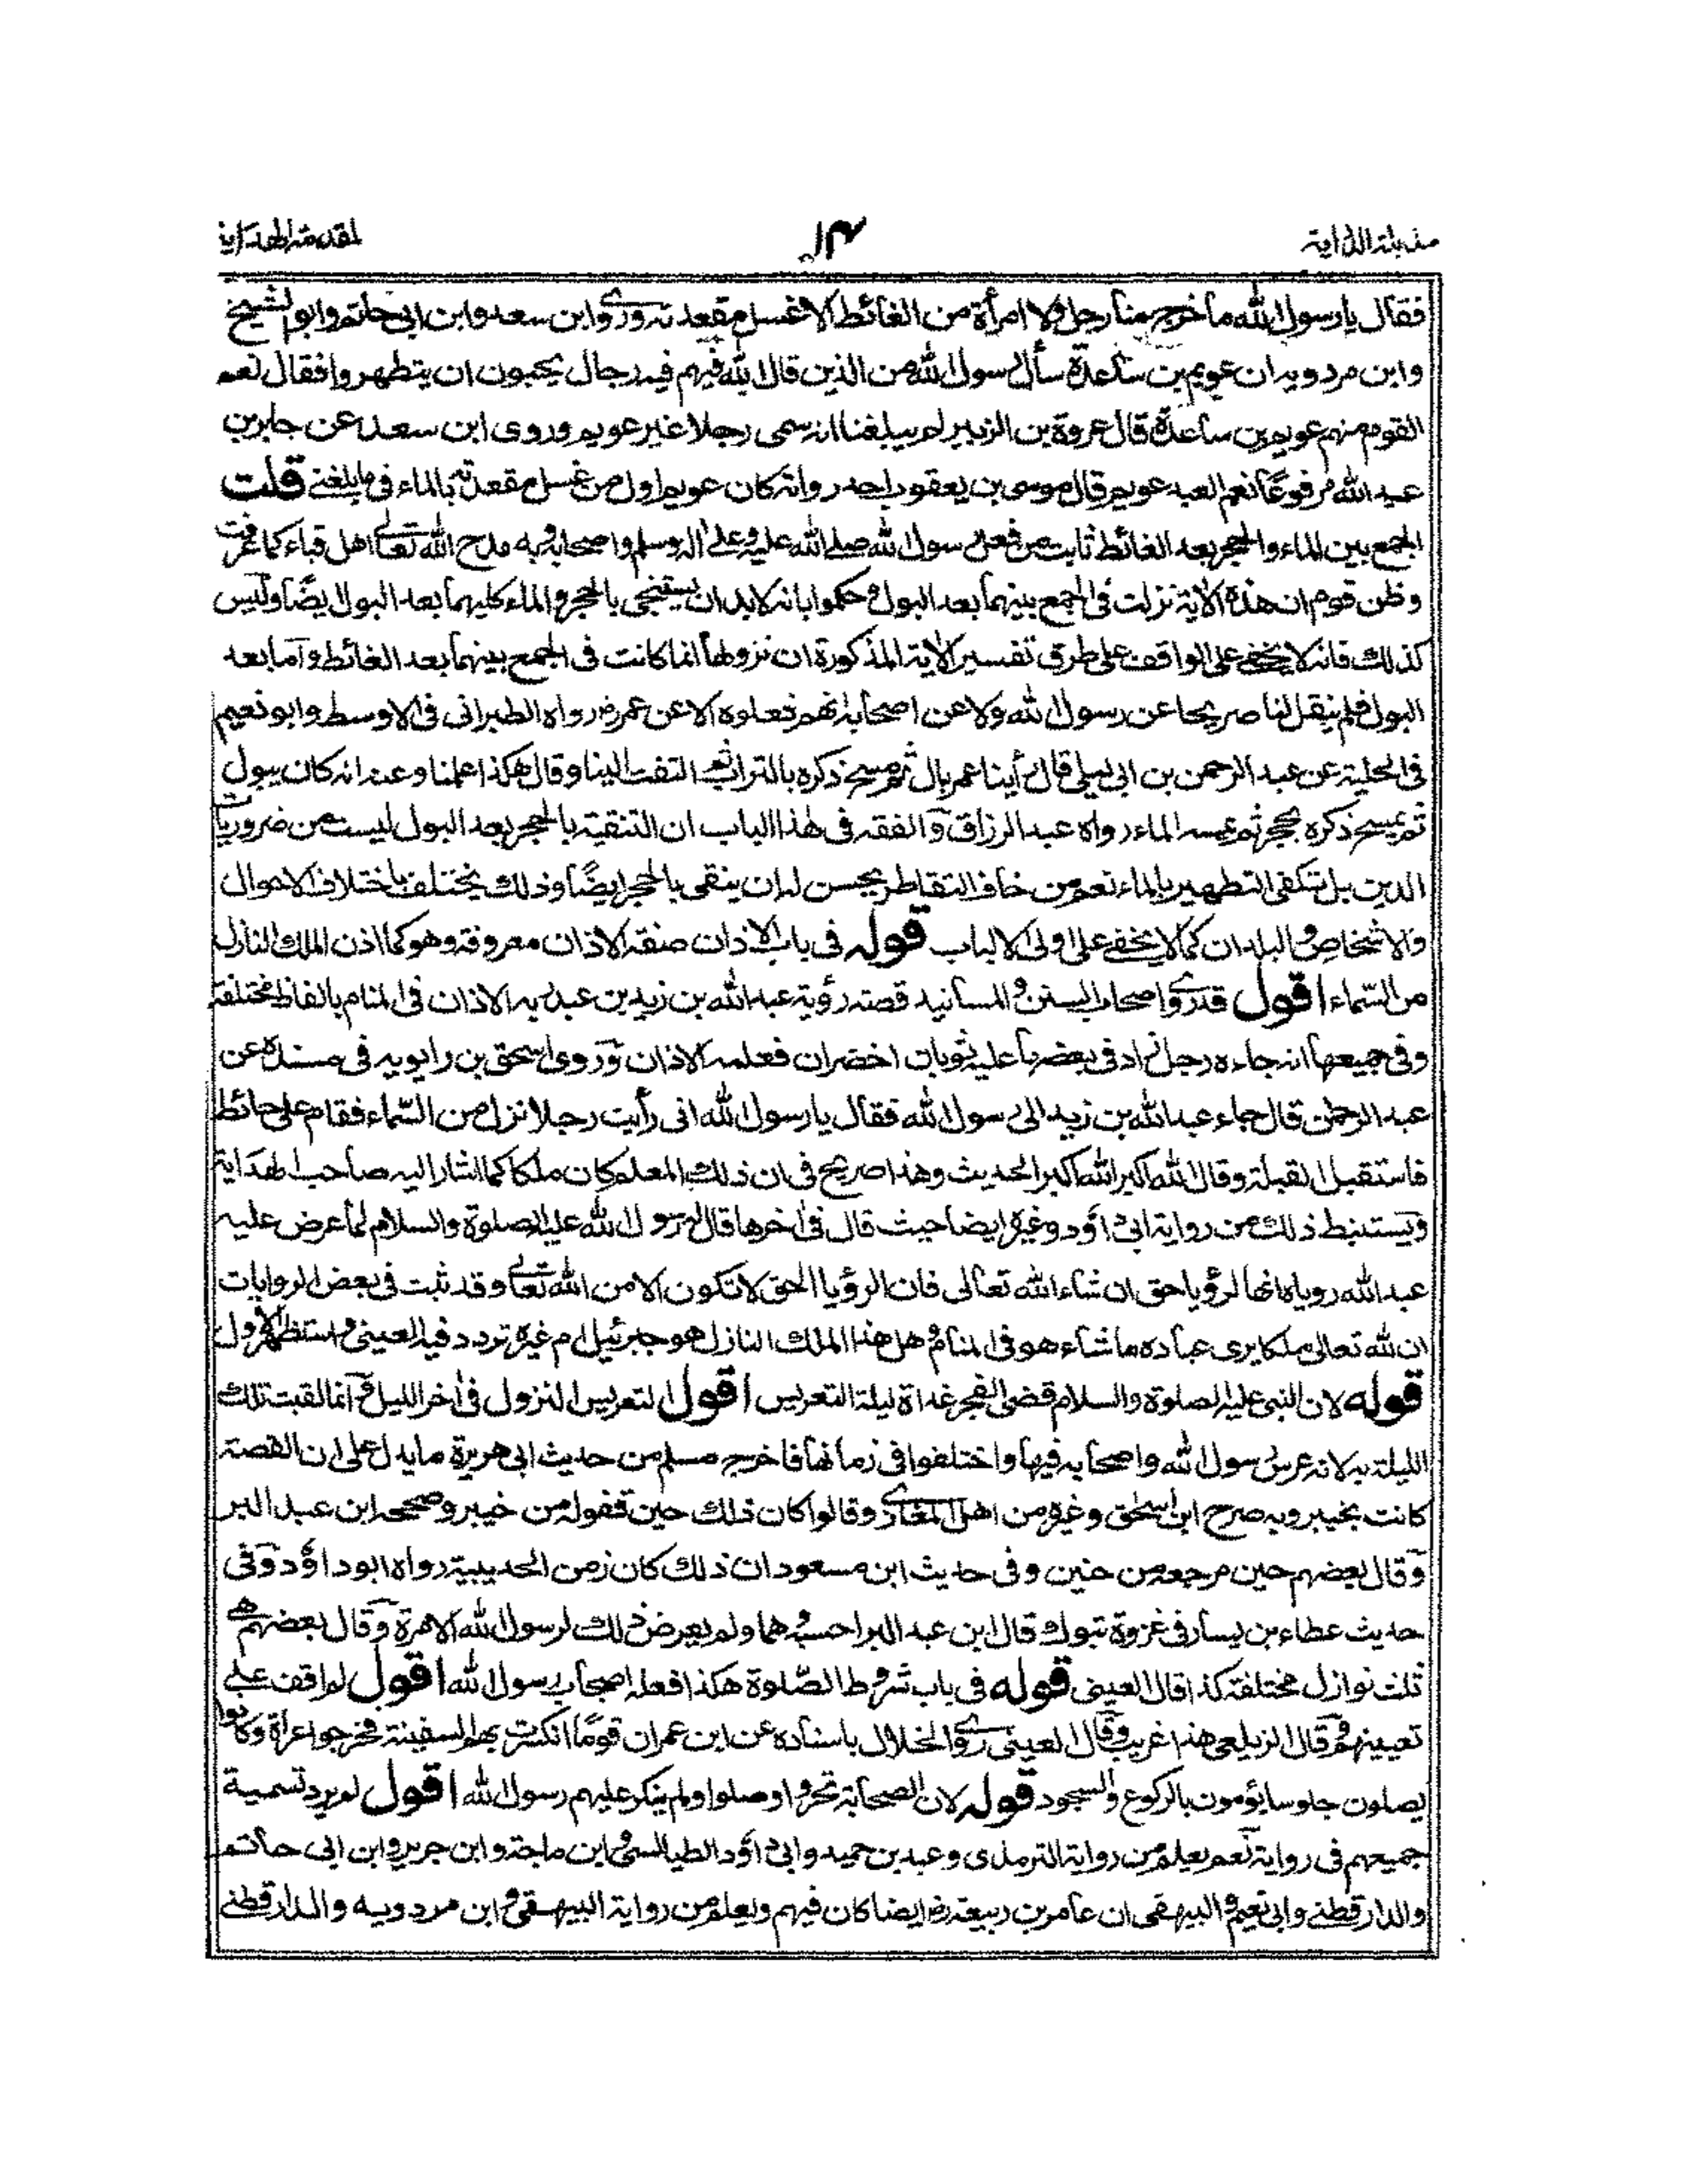 مذيلة الدراية ١٤ لمقدمة الهداية
فقال يا رسول الله ما خرج منا رجل ولا امرأة من الغائط الا غسل مقعدته وروى ابن سعد وابن ابي حاتم وابو الشيخ
وابن مردويه ان عويم بن ساعدة سأل رسول الله من الذين قال الله فيهم فيه رجال يحبون ان يتطهروا فقال نعم
القوم منهم عويم بن ساعدة قال عروة بن الزبير لم يبلغنا انه سمى رجلا غير عويم وروى ابن سعد عن جابر بن
عبد الله مرفوعًا نعم العبد عويم قال موسى بن يعقوب احد رواته كان عويم اول من غسل مقعدته بالماء فيما بلغني قلت
الجمع بين الماء والحجر بعد الغائط ثابت من فعل رسول الله صلے الله عليه وعلى اله وسلم واصحابه وبه مدح الله تعالى اهل قباء كما عرفت
وظن قوم ان هذه الاية نزلت في الجمع بينهما بعد البول وحكموا بانه لا بد ان يستنجي بالحجر والماء كليهما بعد البول ايضًا وليس
كذلك فانه لا يخفى على الواقف على طرق تفسير الاية المذكورة ان نزولها انما كانت في الجمع بينهما بعد الغائط واما بعد
البول فلم ينقل لنا صريحا عن رسول الله ولا عن اصحابه انهم فعلوه الا عن عمر رض رواه الطبراني في الاوسط وابو نعيم
في الحلية عن عبد الرحمن بن ابي ليلى قال رأينا عمر بال ثم مسح ذكره بالتراب ثم التفت الينا وقال هكذا علمنا وعنه انه كان يبول
ثم يمسح ذكره بحجر ثم يمسه الماء رواه عبد الرزاق والفقه في هذا الباب ان التنقية بالحجر بعد البول ليست من ضروريات
الدين بل يتكفى التطهير بالماء نعم من خاف التقاطر يحسن له ان ينقى بالحجر ايضًا وذلك يختلف باختلاف الاحوال
والاشخاص والبلدان كما لا يخفى على اولى الالباب قوله في باب الاذان صفة الاذان معروفة وهو كما اذن الملك النازل
من السماء اقول قد روى اصحاب السنن والمسانيد قصة رؤية عبد الله بن زيد بن عبد ربه الاذان في المنام بالفاظ مختلفة
وفي جميعها انه جاءه رجل زاد في بعضها عليه ثوبان اخضران فعلمه الاذان وروى اسحق بن راهويه في مسنده عن
عبد الرحمن قال جاء عبد الله بن زيد الى رسول الله فقال يا رسول الله انى رأيت رجلا نزل من السماء فقام على حائط
فاستقبل القبلة وقال الله اكبر الله اكبر الحديث وهذا صريح في ان ذلك المعلم كان ملكا كما اشار اليه صاحب الهداية
ويستنبط ذلك من رواية ابي داؤد وغيره ايضا حيث قال في اخرها قال رسول الله عليه الصلوة والسلام لما عرض عليه
عبد الله روياه انها لرؤيا حق ان شاء الله تعالى فان الرؤيا الحق لا تكون الا من الله تعالى وقد ثبت في بعض الروايات
ان لله تعالى ملكا يرى عباده ما شاء هو في المنام وهل هذا الملك النازل هو جبرئيل ام غيره تردد فيه العيني واستظهر الاول
قوله لان النبي عليه الصلوة والسلام قضى الفجر غداة ليلة التعريس اقول التعريس النزول في اخر الليل وانما لقبت تلك
الليلة به لانه عرس رسول الله واصحابه فيها واختلفوا في زمانها فاخرج مسلم من حديث ابي هريرة ما يدل على ان القصة
كانت بخيبر وبه صرح ابن اسحق وغيره من اهل المغازي وقالوا كان ذلك حين قفوله من خيبر وصححه ابن عبد البر
وقال بعضهم حين مرجعه من حنين وفي حديث ابن مسعود ان ذلك كان زمن الحديبية رواه ابو داؤد وفي
حديث عطاء بن يسار في غزوة تبوك قال ابن عبد البر احسبه وهما ولم يعرض ذلك لرسول الله الا مرة وقال بعضهم هى
ثلث نوازل مختلفة كذا قال العيني قوله في باب شروط الصلوة هكذا فعله اصحاب رسول الله اقول لم اقف على
تعيينهم وقال الزيلعي هذا غريب وقال العيني روى الخلال باسناده عن ابن عمر ان قومًا انكسرت بهم السفينة فخرجوا عراة وكانوا
يصلون جلوسا يؤمون بالركوع والسجود قوله لان الصحابة تحروا وصلوا ولم ينكر عليهم رسول الله اقول لم يرد تسمية
جميعهم في رواية نعم يعلم من رواية الترمذي وعبد بن حميد وابي داؤد الطيالسي وابن ماجة وابن جرير وابن ابي حاتم
والدارقطني وابي نعيم والبيهقي ان عامر بن ربيعة رض ايضا كان فيهم ويعلم من رواية البيهقي وابن مردويه والدارقطني